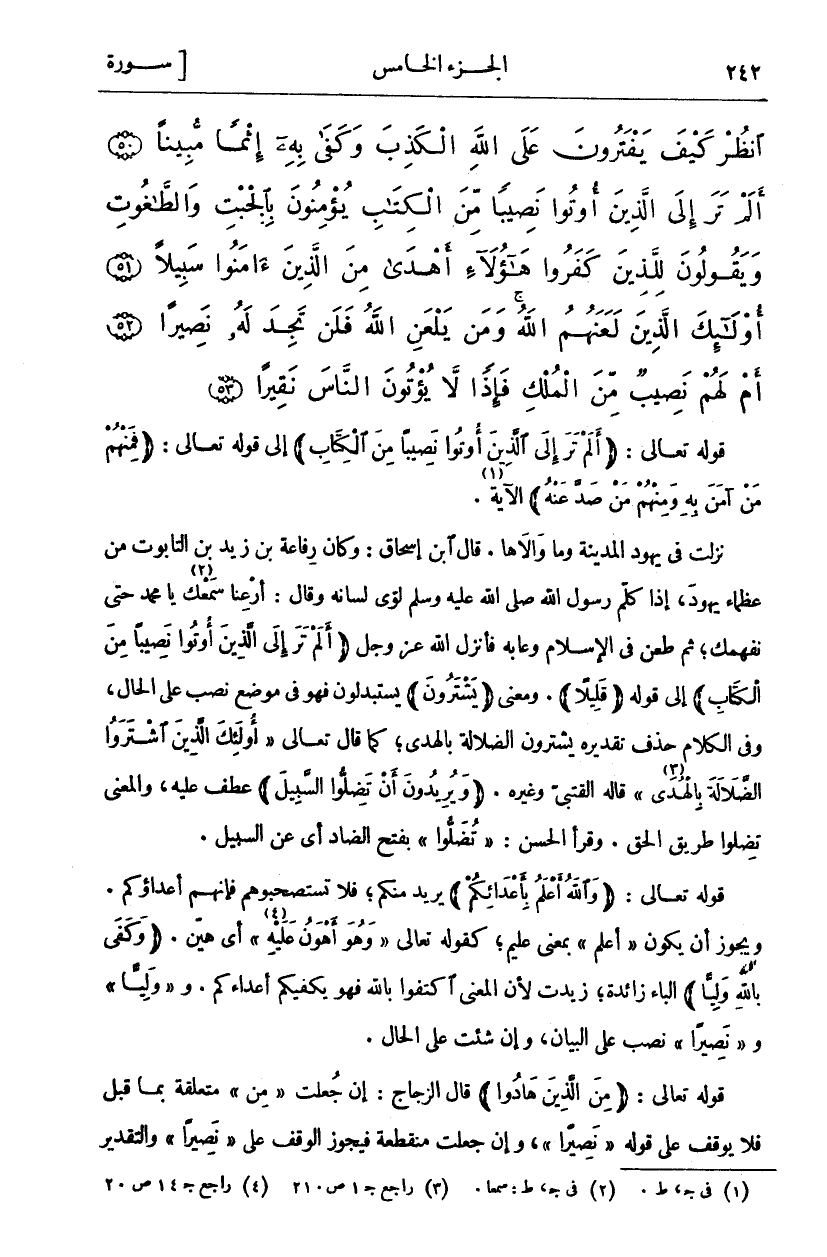 ٢٤٢ الجزء الخامس [ سورة
ٱنظُرْ كَيْفَ يَفْتَرُونَ عَلَى اللَّهِ الْكَذِبَ وَكَفَىٰ بِهِۦٓ إِثْمًا مُّبِيناً ﴿٥٠﴾
أَلَمْ تَرَ إِلَى الَّذِينَ أُوتُوا نَصِيبًا مِّنَ الْكِتَٰبِ يُؤْمِنُونَ بِٱلْجِبْتِ وَالطَّٰغُوتِ
وَيَقُولُونَ لِلَّذِينَ كَفَرُوا هَٰٓؤُلَآءِ أَهْدَىٰ مِنَ الَّذِينَ ءَامَنُوا سَبِيلاً ﴿٥١﴾
أُوْلَٰٓئِكَ الَّذِينَ لَعَنَهُمُ اللَّهُۖ وَمَن يَلْعَنِ اللَّهُ فَلَن تَجِدَ لَهُۥ نَصِيرًا ﴿٥٢﴾
أَمْ لَهُمْ نَصِيبٌ مِّنَ الْمُلْكِ فَإِذًا لَّا يُؤْتُونَ النَّاسَ نَقِيرًا ﴿٥٣﴾
قوله تعالى : ﴿ أَلَمْ تَرَ إِلَى ٱلَّذِينَ أُوتُوا نَصِيبًا مِنَ ٱلْكِتَابِ ﴾ إلى قوله تعالى : ﴿ فَمِنْهُمْ
مَنْ آمَنَ بِهِ وَمِنْهُمْ مَنْ صَدَّ عَنْهُ ﴾ الآية (١) .
نزلت فى يهود المدينة وما وَالَاها . قال ٱبن إسحاق : وكان رِفاعة بن زيد بن التابوت من
عظماء يهودَ، إذا كلّم رسول الله صلى الله عليه وسلم لوَى لسانه وقال : أرْعِنا سَمْعَك (٢) يا محمد حتى
نفهمك؛ ثم طعن فى الإسلام وعابه فأنزل الله عز وجل ﴿ أَلَمْ تَرَ إِلَى الَّذِينَ أُوتُوا نَصِيبًا مِنَ
الْكِتَابِ ﴾ إلى قوله ﴿ قَلِيلًا ﴾ . ومعنى ﴿ يَشْتَرُونَ ﴾ يستبدلون فهو فى موضع نصب على الحال،
وفى الكلام حذف تقديره يشترون الضلالة بالهدى؛ كما قال تعالى « أُولَئِكَ الَّذِينَ اشْتَرَوُا
الضَّلَالَةَ بِالْهُدَى (٣) » قاله القتبىّ وغيره . ﴿ وَيُرِيدُونَ أَنْ تَضِلُّوا السَّبِيلَ ﴾ عطف عليه، والمعنى
تضلوا طريق الحق . وقرأ الحسن : « تُضَلُّوا » بفتح الضاد أى عن السبيل .
قوله تعالى : ﴿ وَٱللَّهُ أَعْلَمُ بِأَعْدَائِكُمْ ﴾ يريد منكم؛ فلا تستصحبوهم فإنهم أعداؤكم .
ويجوز أن يكون « أعلم » بمعنى عليم؛ كقوله تعالى « وَهُوَ أَهْوَنُ عَلَيْهِ (٤) » أى هيّن . ﴿ وَكَفَى
بِاللَّهِ وَلِيًّا ﴾ الباء زائدة؛ زيدت لأن المعنى ٱكتفوا بالله فهو يكفيكم أعداءكم . و « وَلِيًّا »
و « نَصِيرًا » نصب على البيان، وإن شئت على الحال .
قوله تعالى : ﴿ مِنَ الَّذِينَ هَادُوا ﴾ قال الزجاج : إن جُعلت « مِن » متعلقة بما قبل
فلا يوقف على قوله « نَصِيرًا »، وإن جعلت منقطعة فيجوز الوقف على « نَصِيرًا » والتقدير
(١) فى جـ، ط . (٢) فى جـ، ط : سمعا . (٣) راجع جـ ١ ص ٢١٠ (٤) راجع جـ ١٤ ص ٢٠